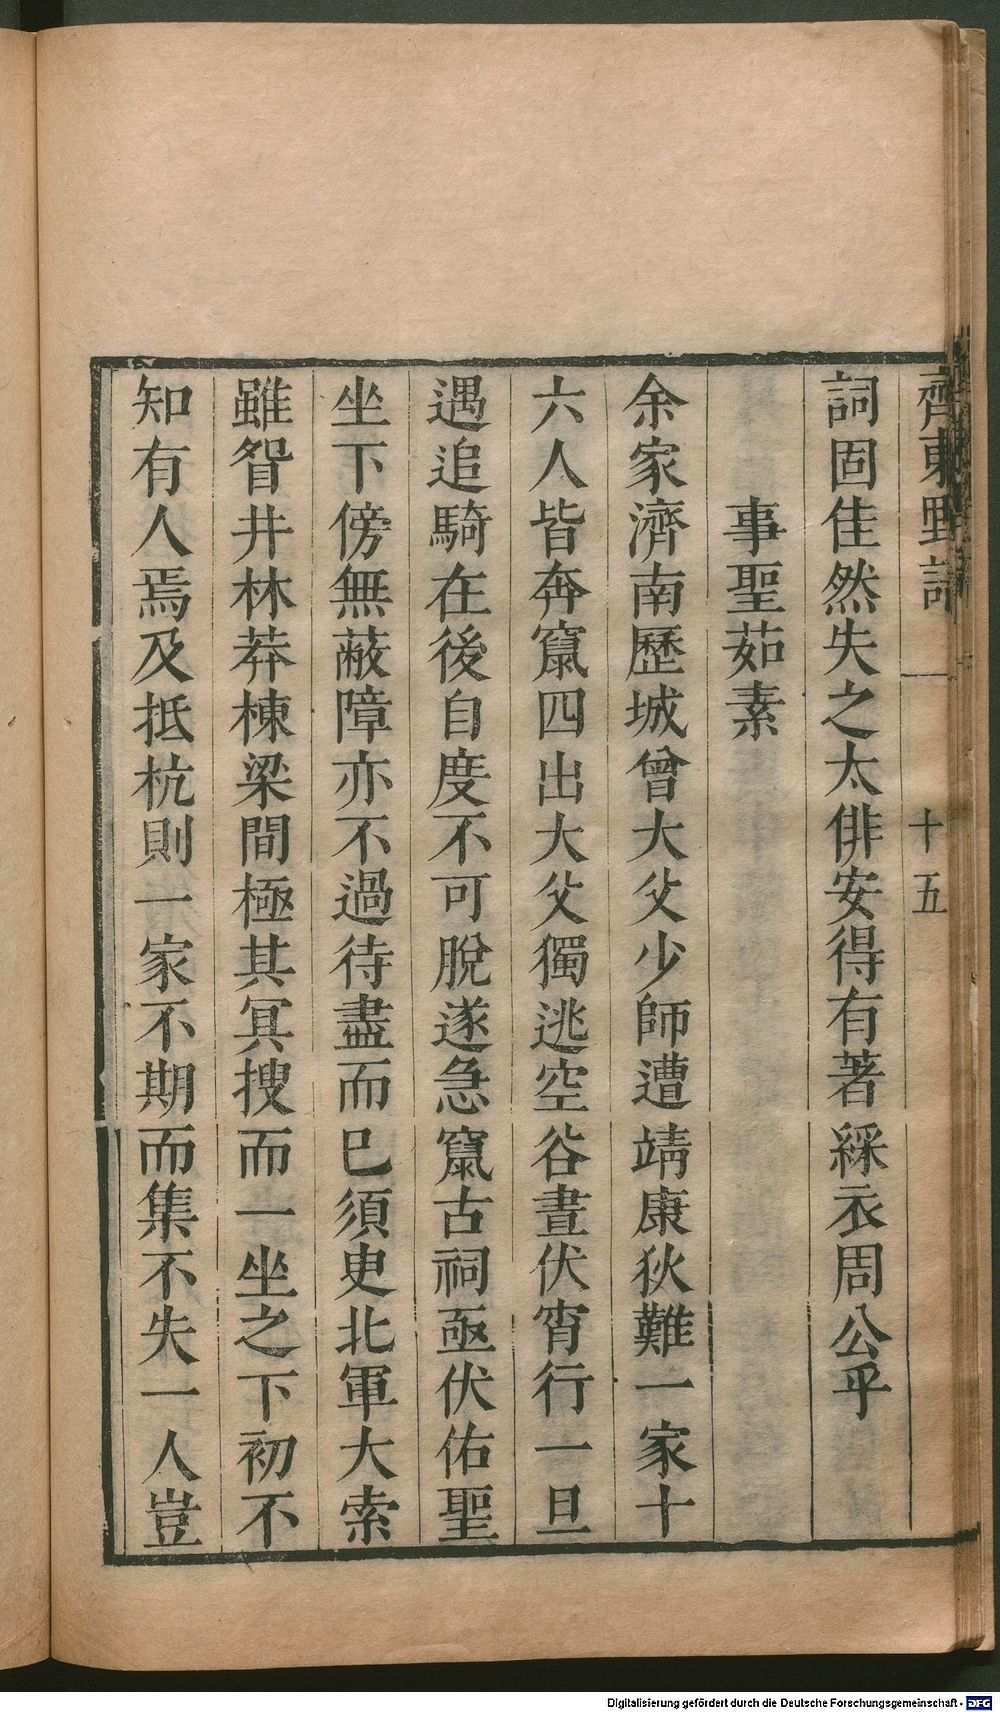 齊東野語
十五
詞固佳然失之太俳安得有著綵衣周公乎
事聖茹素
余家濟南歷城曾大父少師遭靖康狄難一家十
六人皆奔竄四出大父獨逃空谷晝伏宵行一旦
遇追騎在後自度不可脫遂急竄古祠亟伏佑聖
坐下傍無蔽障亦不過待盡而巳須臾北軍大索
雖眢井林莽棟梁間極其冥搜而一坐之下初不
知有人焉及抵杭則一家不期而集不失一人豈
Digitalisierung gefördert durch die Deutsche Forschungsgemeinschaft - DFG